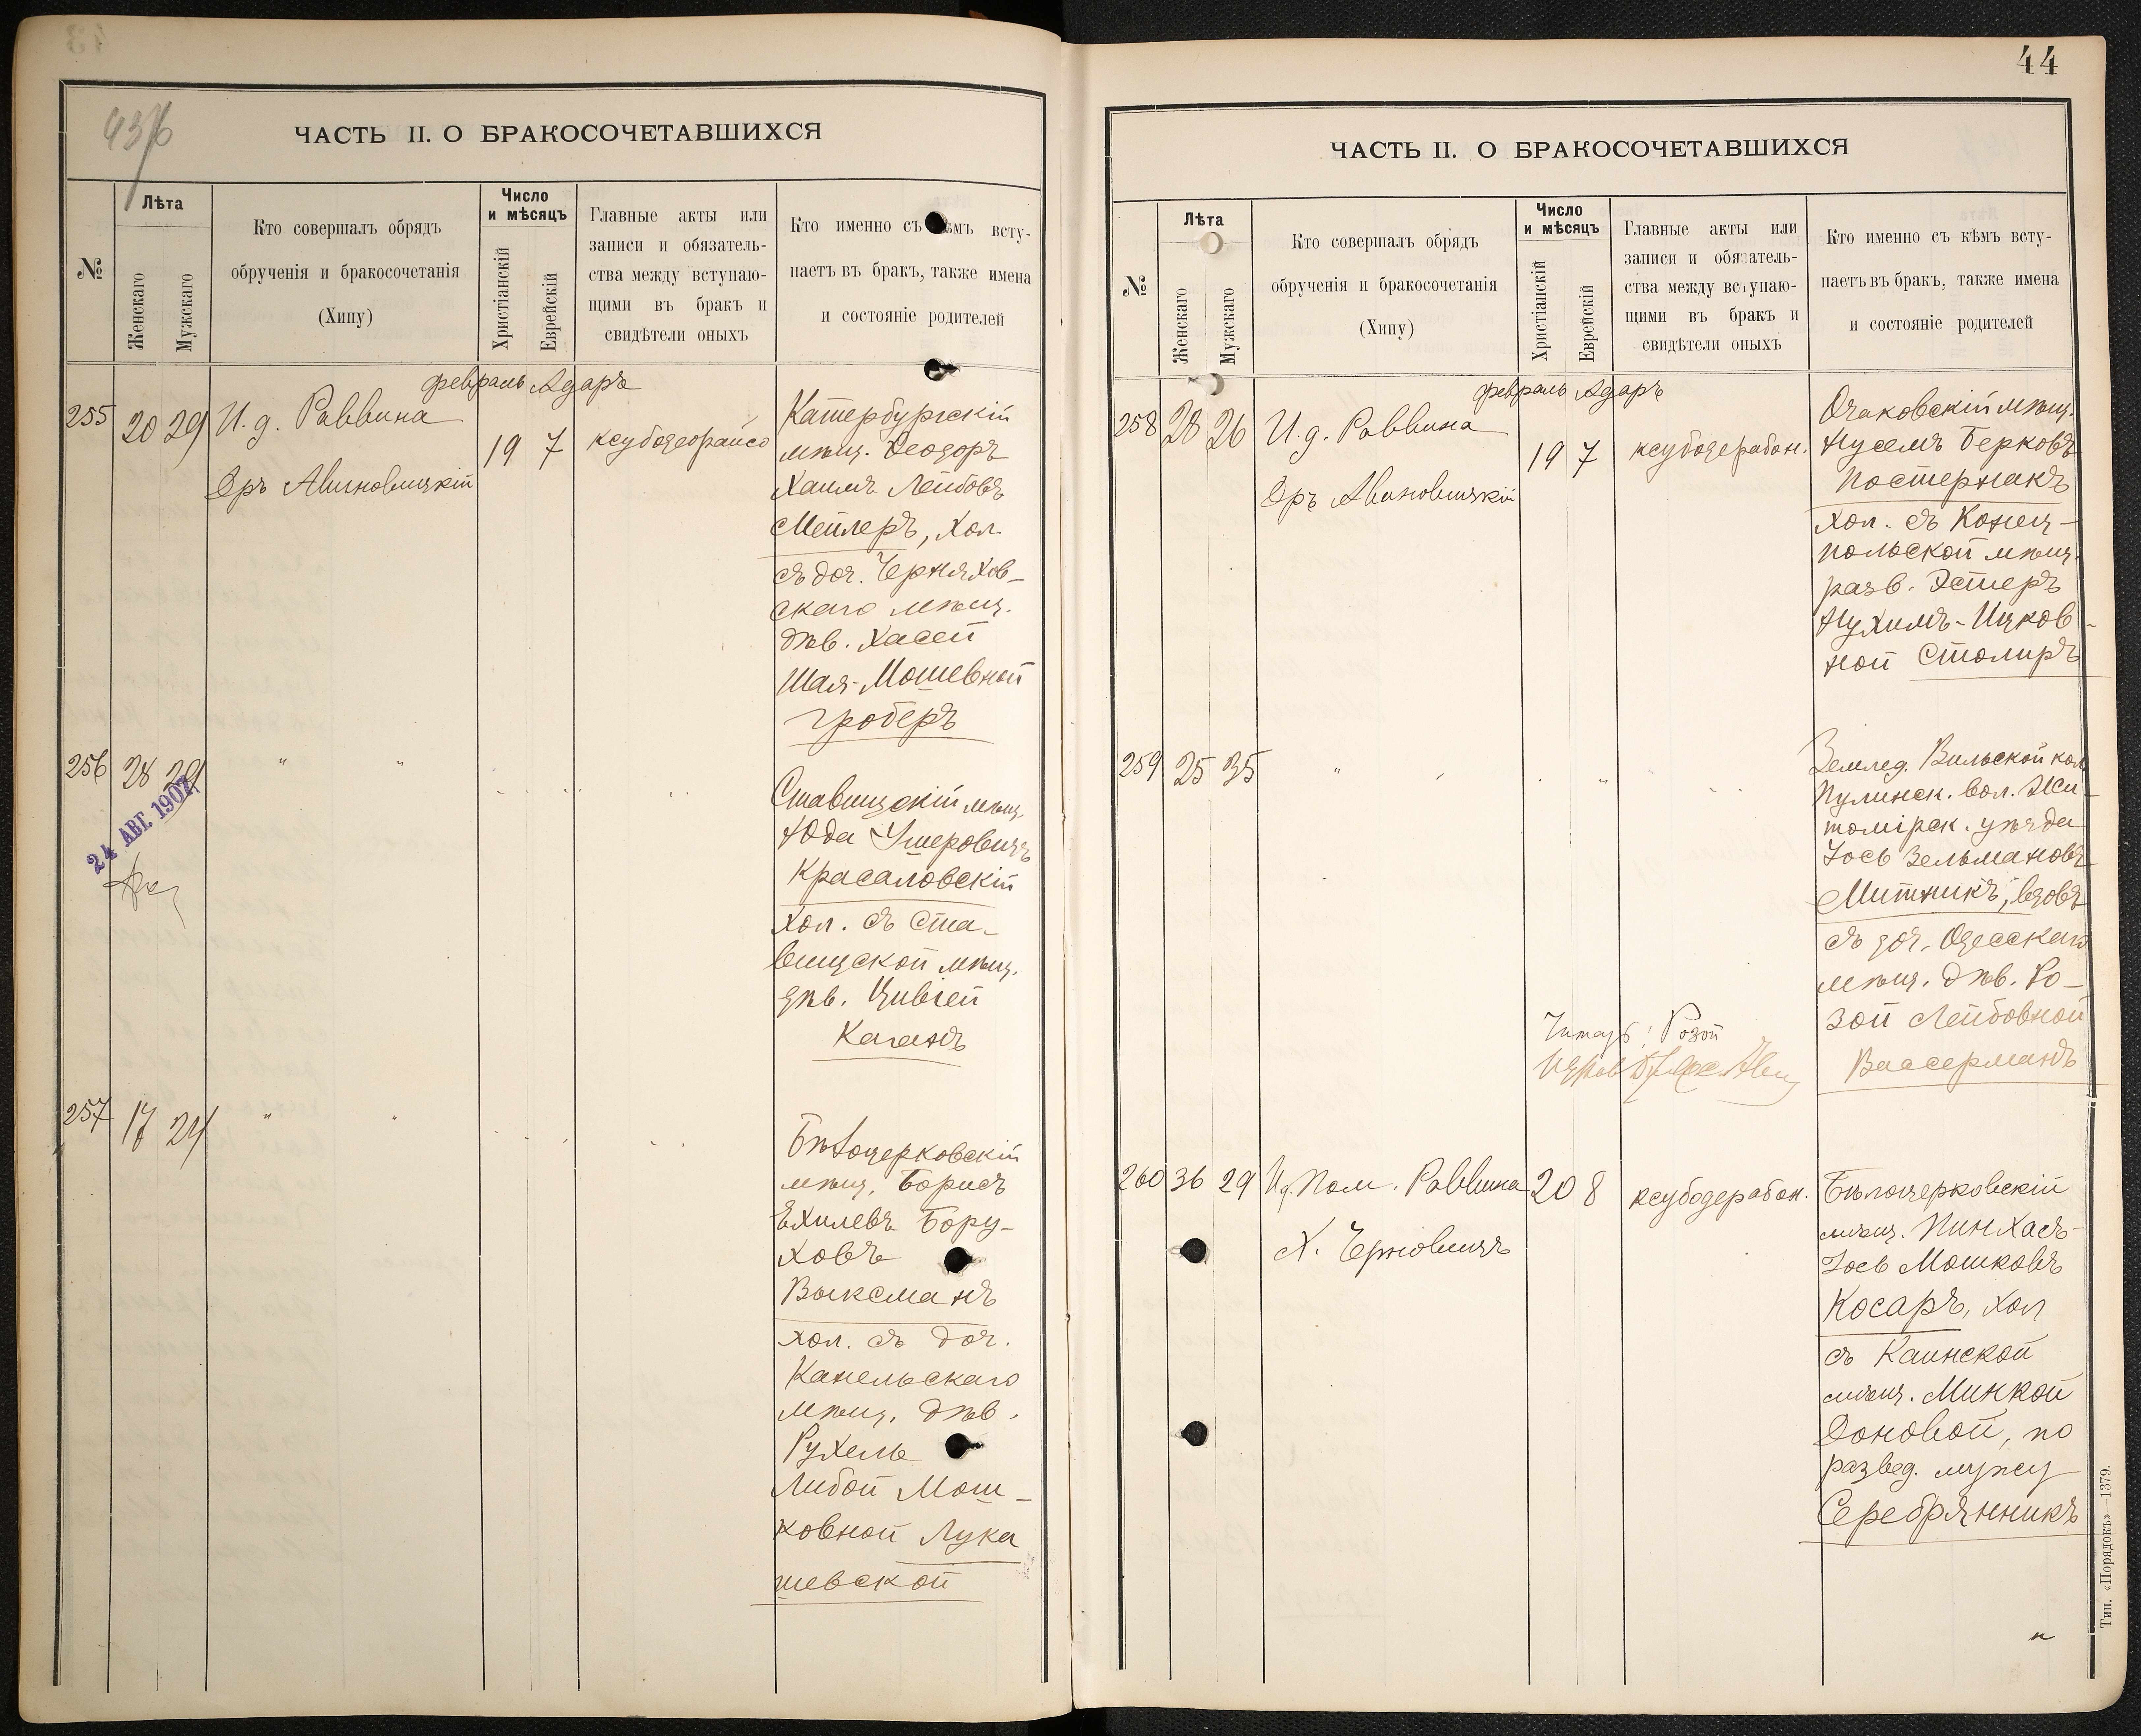 43
436
ЧАСТЬ II. О БРАКОСОЧЕТАВШИХСЯ
№
Лѣта
Женскаго
Мужскаго
Кто совершалъ обрядъ
обрученія и бракосочетанія
(Хипу)
Число
и мѣсяцъ
Христіанскій
Еврейскій
Главные акты или
записи и обязатель-
ства между вступаю-
щими въ бракъ и
свидѣтели оныхъ
Кто именно съ кѣмъ всту-
паетъ въ бракъ, также имена
и состояніе родителей
февраль Адаръ
255 20 29 И. д. Раввина
19 7
Катербургскій
мѣщ. Ѳеодоръ
Хаимъ Лейбовъ
Мейлеръ, хол
съ доч. Черняхов-
скаго мѣщ.
дѣв. Хасей
Шая-Мошевной
Гроберъ
256 28 29 " "
24 АВГ. 1907
Ставищскій мѣщ.
Юда Ушеровичъ
Красаловскій
хол. съ Ста-
вищской мѣщ.
дѣв. Цивіей
Каганъ
257 17 24 " "
Бѣлоцерковскій
мѣщ. Борисъ
Ехилевъ Бору-
ховъ
Воксманъ
хол. съ доч.
Канельскаго
мѣщ. дѣв.
Рухель
Либой Мош-
ковной Лука
шевской
44
ЧАСТЬ II. О БРАКОСОЧЕТАВШИХСЯ
№
Лѣта
Женскаго
Мужскаго
Кто совершалъ обрядъ
обрученія и бракосочетанія
(Хипу)
Число
и мѣсяцъ
Христіанскій
Еврейскій
Главные акты или
записи и обязатель-
ства между вступаю-
щими въ бракъ и
свидѣтели оныхъ
Кто именно съ кѣмъ всту-
паетъ въ бракъ, также имена
и состояніе родителей
февраль Адаръ
258 28 26 И. д. Раввина
19 7 ксубодерабон.
Очаковскій мѣщ.
Нусемъ Берковъ
Постернакъ
хол. съ Конец-
польской мѣщ.
разв. Эстеръ
Нухимъ-Ицков-
ной Столиръ
259 25 35 "
Землед. Вильской кол
Пулинск. вол. Жи-
томірск. уѣзда
Іось Зельмановъ
Митникъ, вдовъ
съ доч. Одесскаго
мѣщ. дѣв. Ро-
зой Лейбовной
Вассерманъ
Читать: Розой
260 36 29 И.д. Пом. Раввина 20 8 ксубодерабон.
Х. Черновичъ
Бѣлоцерковскій
мѣщ. Пинхасъ-
Іось Мошковъ
Косаръ, хол
съ Каинской
мѣщ. Минкой
Доновой, по
развед. мужу
Серебрянникъ
Тип. «Порядокъ»—1379.